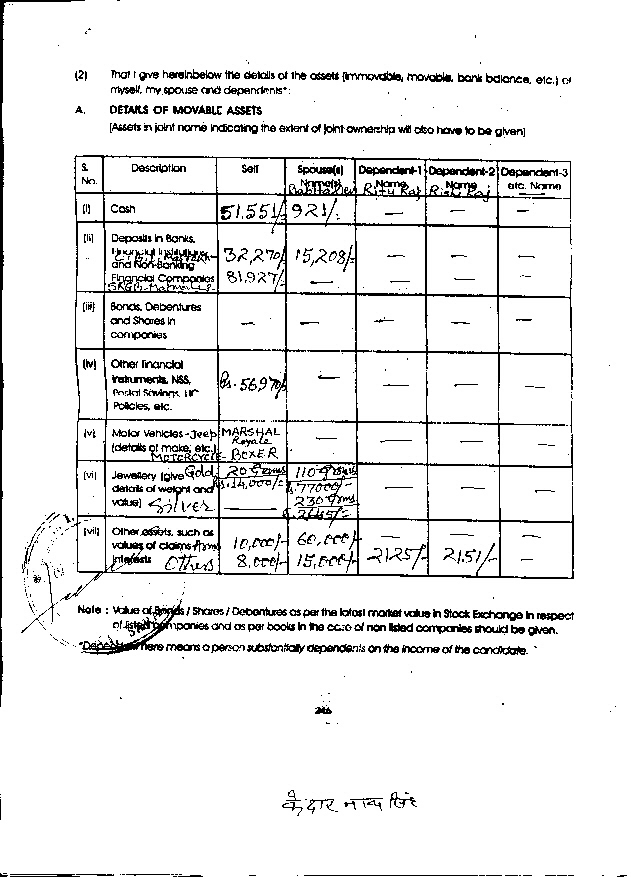 (2) That I give hereinbelow the details of the assets (immovable, movable, bank balance, etc.) of
myself, my spouse and dependents*:
A. DETAILS OF MOVABLE ASSETS
[Assets in joint name indicating the extent of joint ownership will also have to be given]
S. No. Description Self Spouse(s) Name(s) Dependent-1 Name Ritu Raj Dependent-2 Name Rishi Raj Dependent-3 etc. Name
(i) Cash 51,551/- 921/- — — —
(ii) Deposits in Banks,
Financial Institutions 32,270/- 15,208/- — — —
and Non-Banking
Financial Companies 81,927/- — — — —
(iii) Bonds, Debentures
and Shares in — — — — —
companies
(iv) Other financial
instruments, NSS, Rs. 56,970/- — — — —
Postal Savings, LIC
Policies, etc.
(v) Motor Vehicles - Jeep MARSHAL Royale — — — —
(details of make, etc.) MOTORCYCLE - BOXER
(vi) Jewellery (give Gold 20 grms 110 grms
details of weight and Rs. 14,000/- 77000/- — — —
value) Silver — 230 grms
(vii) Other assets, such as
values of claims Arms 10,000/- 60,000/-
interests Others 8,000/- 15,000/- 2125/- 2151/- —
Note : Value of Bonds / Shares / Debentures as per the latest market value in Stock Exchange in respect
of listed companies and as per books in the case of non listed companies should be given.
*Dependent here means a person substantially dependents on the income of the candidate.
246
केदार नाथ सिंह